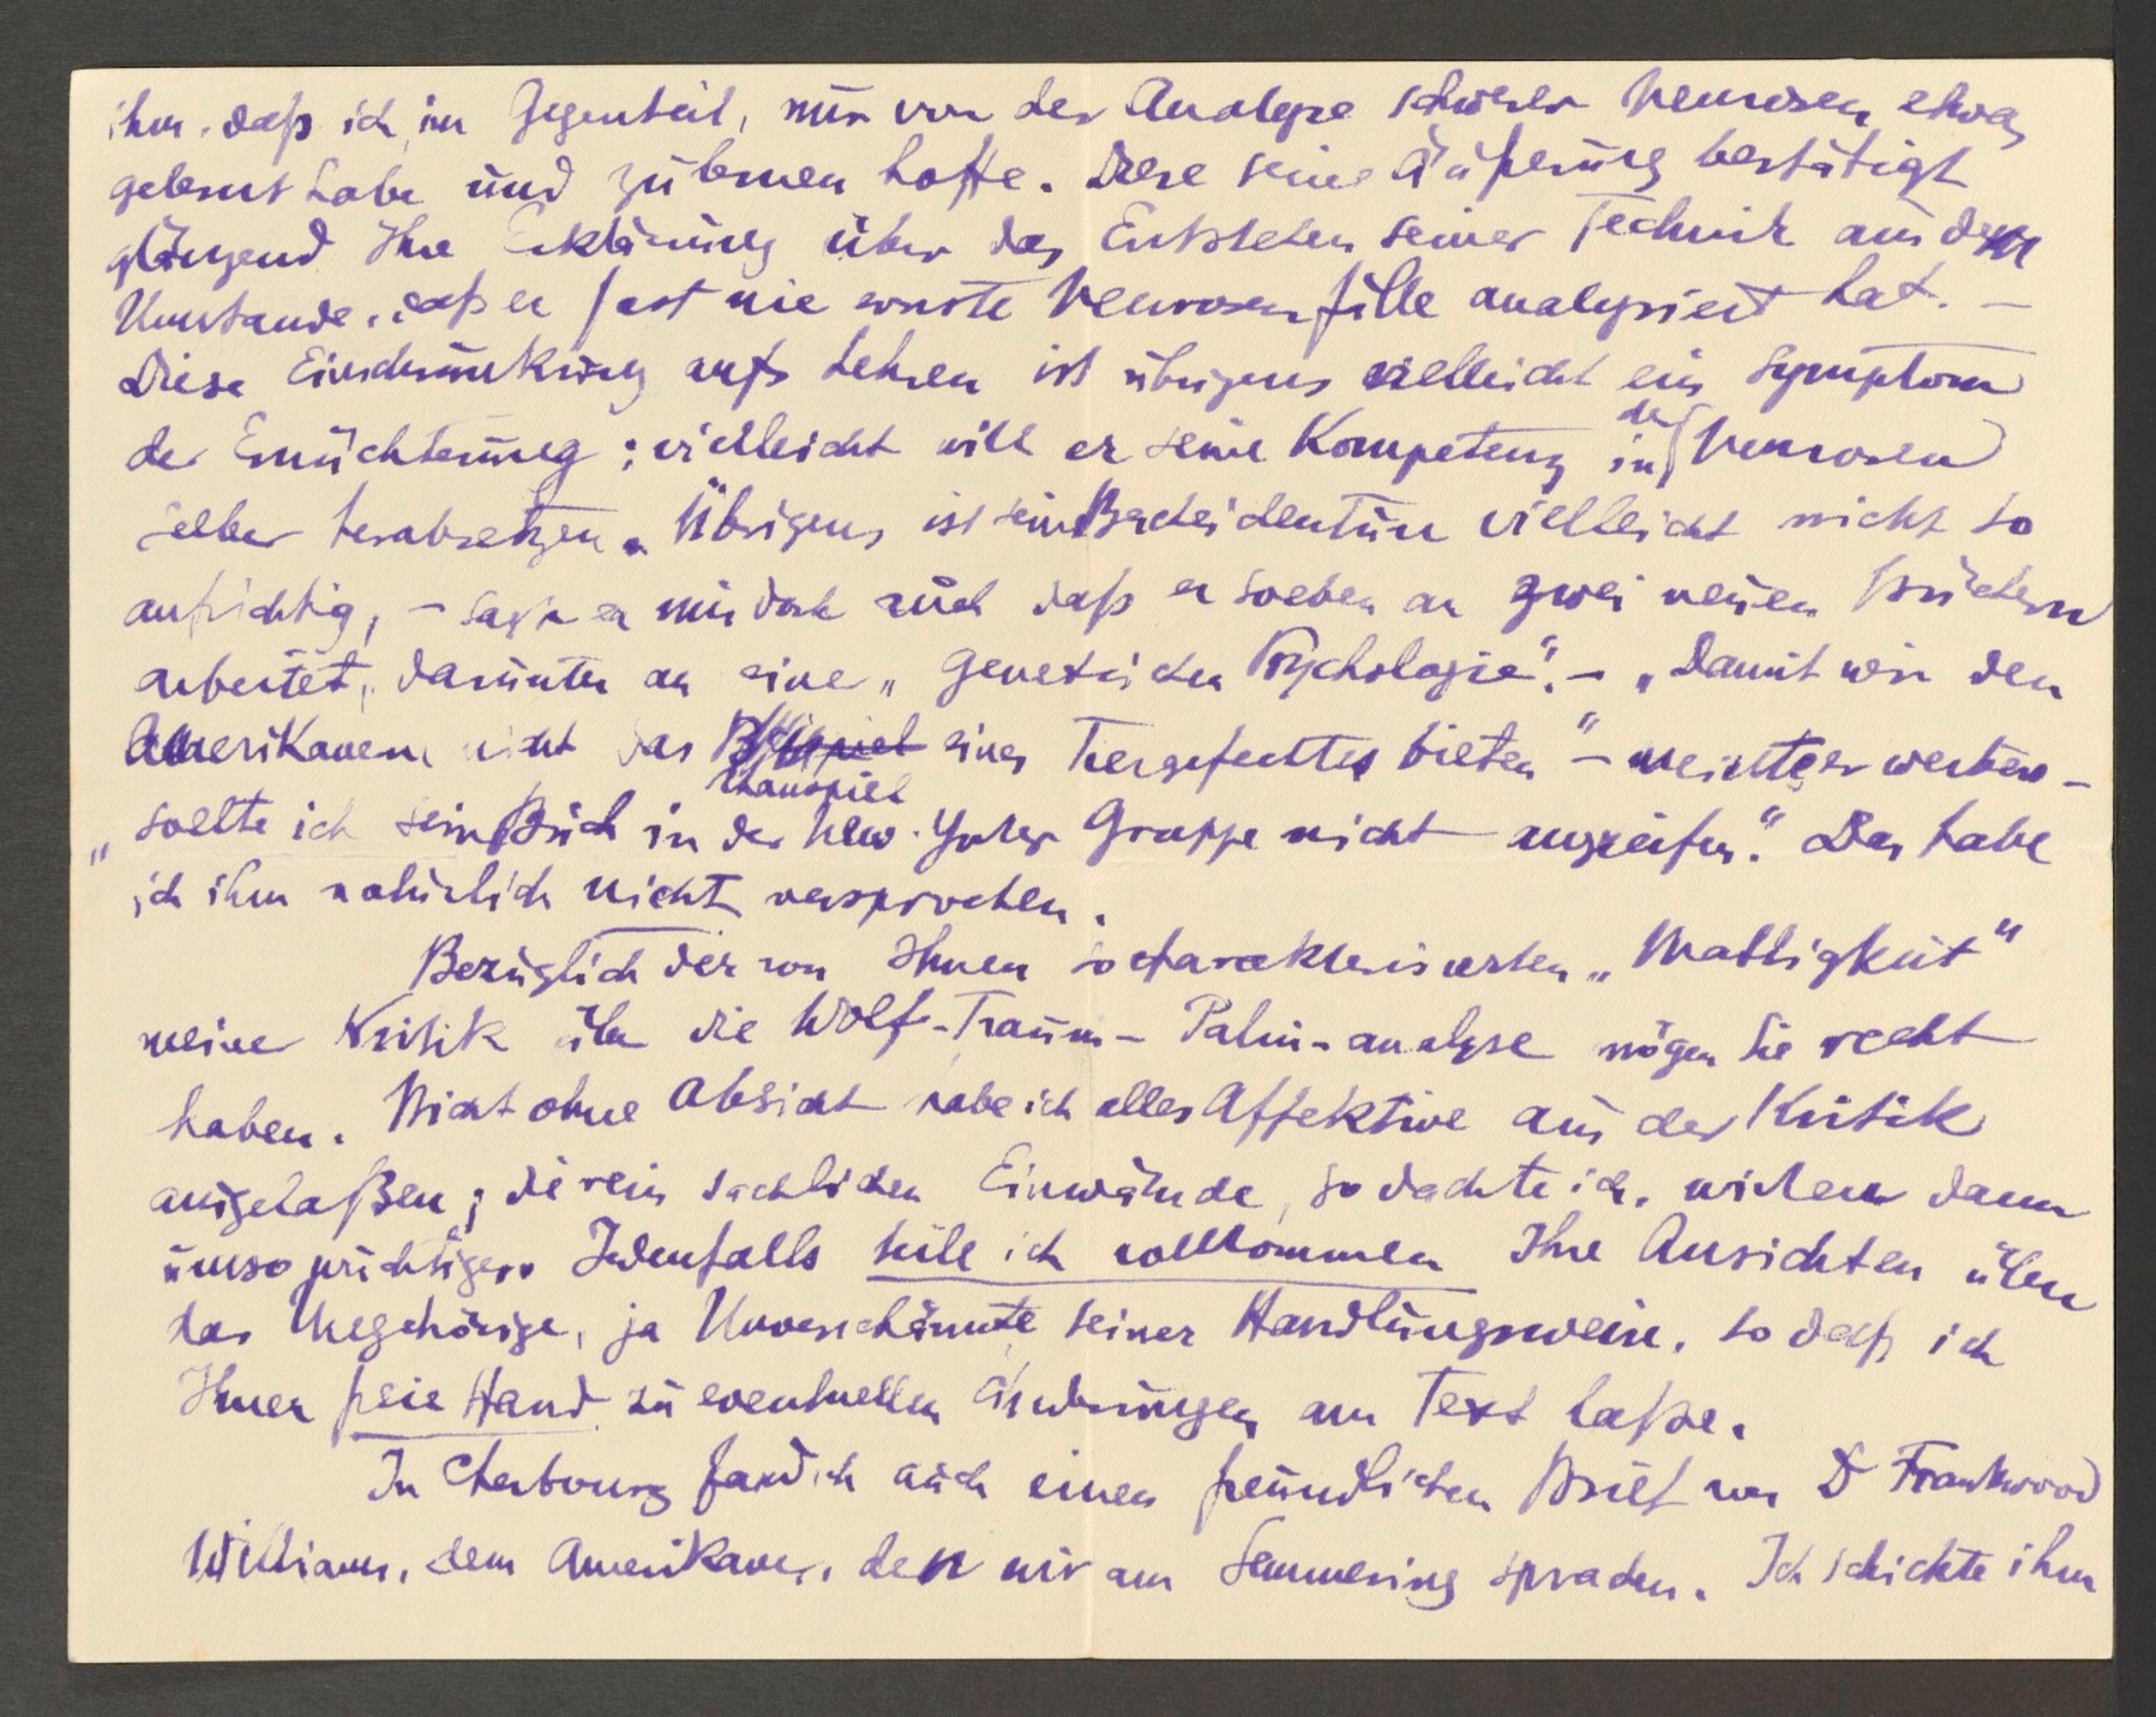 ihm, daß ich, im Gegenteil, nur von der Analyse schwerer Neurosen etwas
gelernt habe und zu lernen hoffe. Diese seine Äußerung bestätigt
glänzend Ihre Erklärung über das Entstehen seiner Technik aus dem
Umstande, daß er fast nie ernste Neurosenfälle analysiert hat. –
Diese Einschränkung aufs Lehren ist übrigens vielleicht ein Symptom
der Ernüchterung; vielleicht will er seine Kompetenz in den Neurosen
selber herabsetzen. Übrigens ist sein Bescheidentun vielleicht nicht so
aufrichtig, – sagte er mir doch auch daß er soeben an zwei neuen Büchern
arbeitet, darunter an eine „Genetischen Psychologie". – „Damit wir den
Amerikanern nicht das Beispiel eines Tiergefechtes bieten" – meinte er weiters –
Schauspiel
„sollte ich sein Buch in der New-Yorker Gruppe nicht angreifen." Das habe
ich ihm natürlich nicht versprochen.
Bezüglich der von Ihnen so charakterisierten „Mattigkeit"
meiner Kritik über die Wolf-Traum-Palm-analyse mögen Sie recht
haben. Nicht ohne Absicht habe ich alles Affektive aus der Kritik
ausgelaßen; die rein sachlichen Einwände, so dachte ich, wirken dann
umso wuchtiger. Jedenfalls teile ich vollkommen Ihre Ansichten über
das Ungehörige, ja Unverschämte seiner Handlungsweise, so daß ich
Ihnen freie Hand zu eventuellen Änderungen am Text laße.
In Cherbourg fand ich auch einen freundlichen Brief von Dr Frankwood
Williams, dem Amerikaner, den wir am Semmering sprachen. Ich schickte ihm